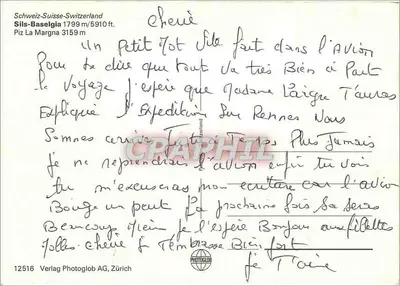 Schweiz-Suisse-Switzerland
Sils-Baselgia 1799 m/5910 ft.
Piz La Margna 3159 m
Cherie
Un Petit Mot Vite fait dans l'Avion
Pour te dire que tout va très Bien à Part
le voyage j'espère que Madame T'auras
Expliquer l'Expedition Sur Rennes Nous
Sommes arrivé Temps Plus Jamais
je ne reprendrai l'avion enfin tu vois
tu m'excuseras mon ecriture car l'avion
Bouge un peut La prochaine fois sa seras
Beaucoup Mieux je l'espère Bonjour aux filettes
Cherie je T'embrasse Bien fort
je T'aime
CPAPHIL
PHOTOGLOB
12516 Verlag Photoglob AG, Zürich